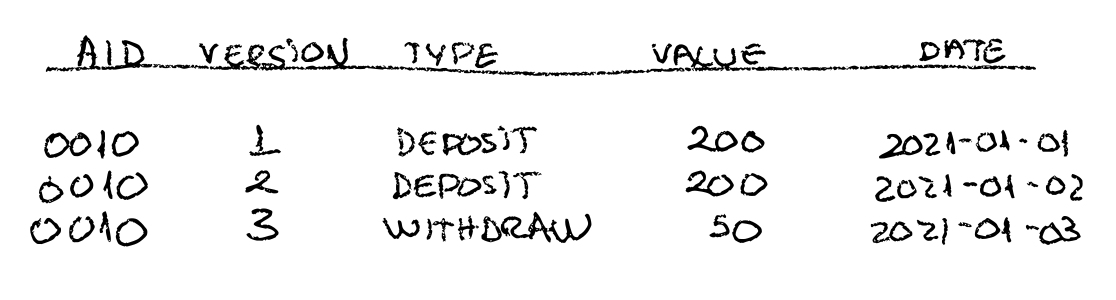 AID VERSION TYPE VALUE DATE
0010 1 DEPOSIT 200 2021-01-01
0010 2 DEPOSIT 200 2021-01-02
0010 3 WITHDRAW 50 2021-01-03